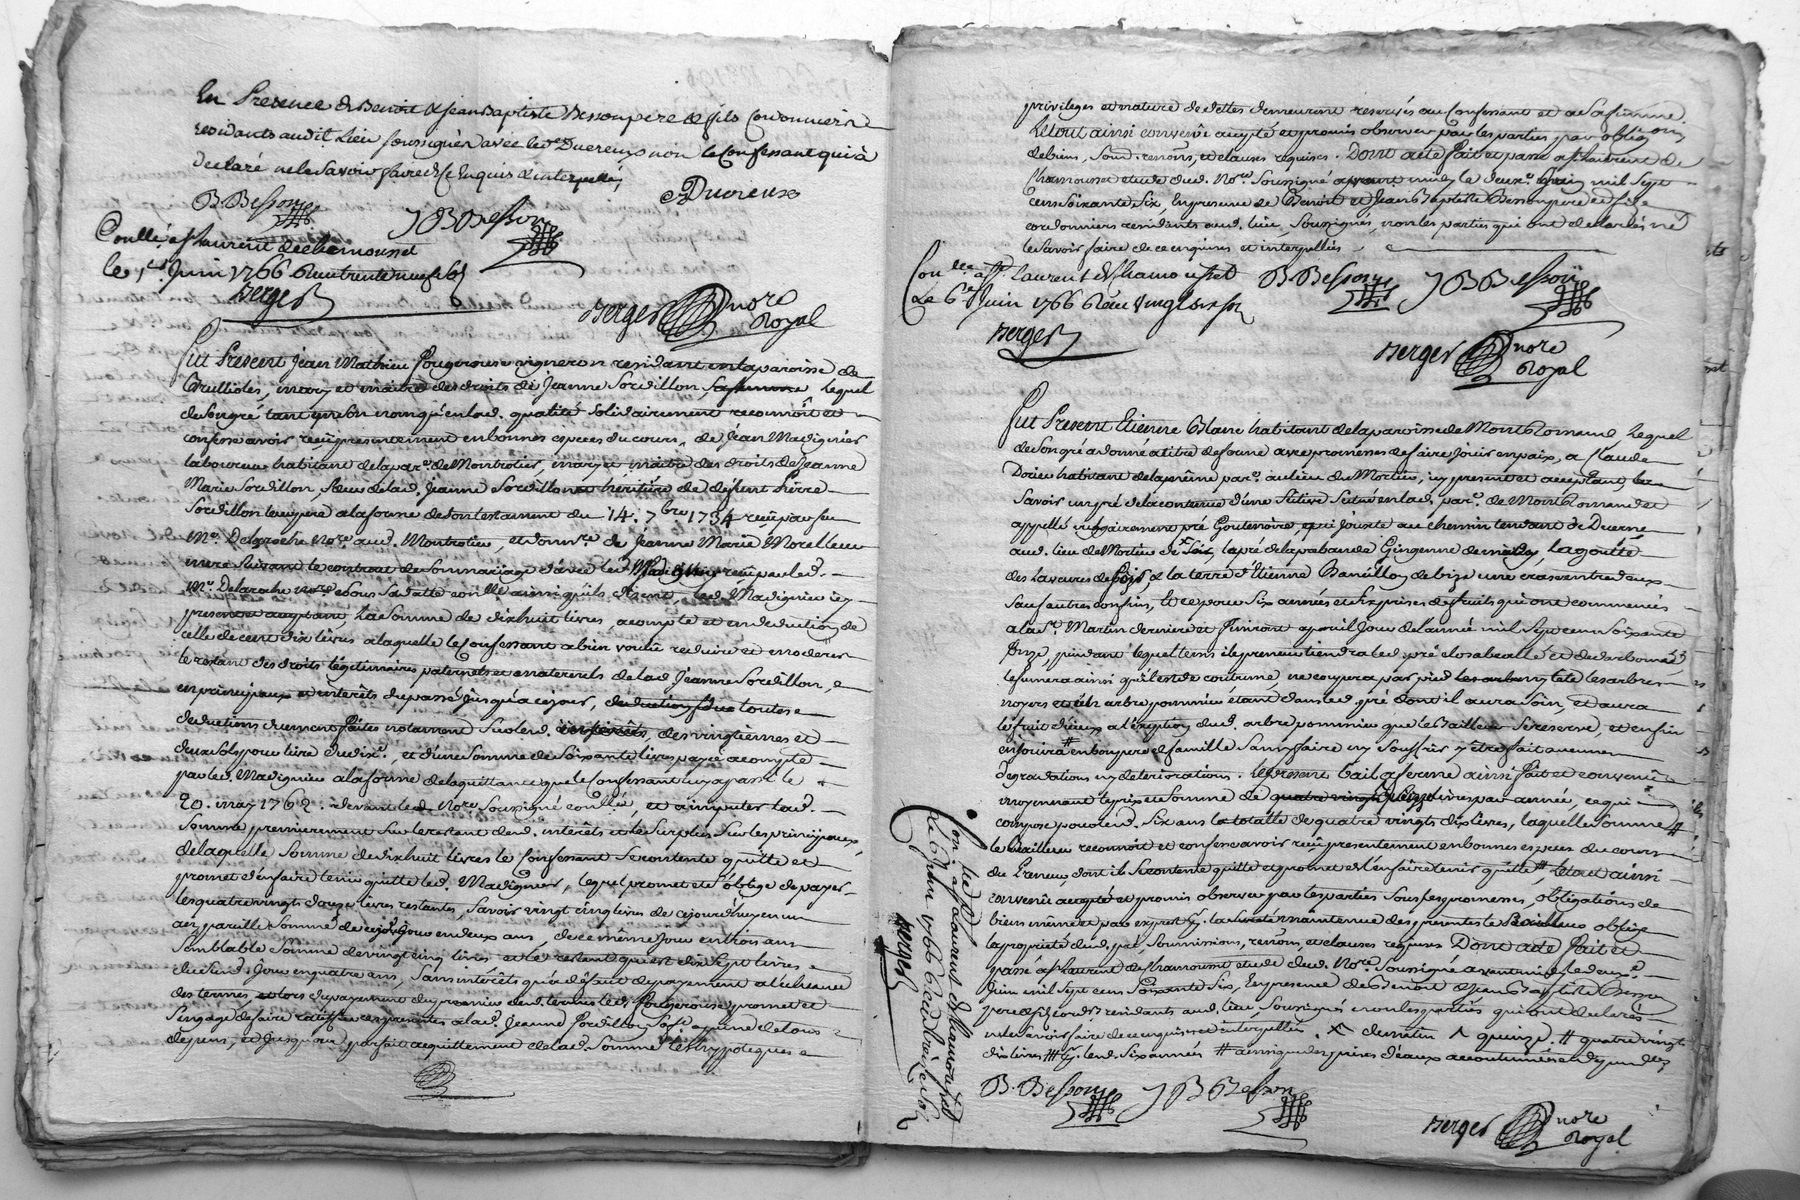 En Presence de Benoit & Jean Baptiste Besson pere & fils Cordonniers
residants audit lieu soussignés avec led.t Ducreux non le Confessant qui a
declaré ne le Savoir faire de ce Enquis & interpellé,
B. Besson
JB Besson
Ducreux
Conllé a St Laurent de chamousset
le 1er Juin 1766
Berger
Berger nore
Royal
Fut Present Jean Mathieu Fougerouse vigneron residant en la paroisse de
Brullioles, mary et maitre des droits de Jeanne Sordillon, sa femme Lequel
de Son gré tant en Son nom qu'en lad. qualité solidairement reconnoit et
confesse avoir reçu presentement en bonnes especes du cours, de Jean Madignier
laboureur habitant de la par.e de Montrotier, mary et maitre des droits de Jeanne
Marie Sordillon, Sœur de lad. Jeanne Sordillon heritiere de defunt Pierre
Sordillon leur pere a la forme de Son testament du 14. 7bre 1754 reçu par feu
Me. Delaroche Nore. aud. Montrotier, et de Jeanne Marie Morel leur
mere Suivant le contrat de Son mariage avec led. Madignier reçu par led.
Me. Delaroche nore Sous Sa datte conllé ainsi qu'ils disent, led. Madignier icy
present et acceptant La Somme de dixhuit livres, a compte et en deduction de
celle de cent dix livres a laquelle le Confessant a bien voulu reduire et moderer
le restant des droits légitimaires paternels et maternels de lad Jeanne Sordillon,
en principaux et interêts du passé jusqu'a ce jour, deduction faite toutes
deductions duement faites notament Sur led. des vingtiemes et
deux Sols pour livre du dixe., et d'une Somme de Soixante livres payée acompte
par led. Madignier a la forme de la quittance que le Confessant luy a passé le
20. may 1762. devant led Nore. Soussigné conllée, et a imputer lad.
Somme premierement Sur le restant desd. interêts et le Surplus Sur les principaux,
de laquelle Somme de dixhuit livres le Confessant Se contente quitte et
promet d'en faire tenir quitte led. Madignier, lequel promet et s'oblige de payer
les quatre vingts douze livres restantes, Savoir vingt cinq livres de ce jourd'huy en un
an, pareille Somme de ce jour en deux ans, de ce même jour en trois ans
Semblable Somme de vingt cinq livres et le restant qui est dix Sept livres
dud. Jour en quatre ans, Sans interêts qu'a défaut de payement a l'écheance
des termes, et lors du payement du premier desd. termes led. Fougerouse promet et
S'engage de faire ratiffier ces presentes a lad. Jeanne Sordillon Sa fe. a peine de tous
depens, et jusqu'au parfait acquittement de lad. Somme les hypoteques
privileges et nature de dettes demeurent reservés au Confessant et a Sa femme.
Le tout ainsi convenû accepté et promis observer par les parties par obligaons
de biens, Soum. renons, et clauses requises. Dont acte fait et passé a St Laurent de
Chamousset etude dud. Nore. Soussigné avant midy le deuxe. Juin mil Sept
cens Soixante Six, En presence de Benoit et Jean Baptiste Besson pere et fils
cordonniers residants aud. lieu, Soussignés, non les parties qui ont declaré ne
le Savoir faire de ce enquises et interpellés
Conllé a St. Laurent de Chamousset
Le 6e Juin 1766
Berger
B. Besson
JB Besson
Berger nore
Royal
Fut Present Etienne Blanc habitant de la paroisse de Montromand, Lequel
de Son gré a donné a titre de ferme avec promesses de faire Jouir en paix, a Claude
Dorieu habitant de la même par.e au lieu du Mortier, icy present et acceptant
Savoir un pré de la contenue d'une Situé en lad. par.e de Montromand et
appellé vulgairement pré Goutenoire, qui Jouxte au chemin tendant de Duerne
aud. lieu de Mortier de Soir, le pré de la de midy, la goutte
des Laveures de & la terre d'Etienne de bize une rase entre deux
Sauf autres confins, Et ce pour Six années et Six prises de fruits qui ont commencés
a la St. Martin derniere et finiront a pareil Jour de l'année mil Sept cens Soixante
onze, pendant lequel tems le preneur tiendra led. pré clos
le fumera ainsi qu'il est de coutume, ne coupera par pied les arbres
noyers et un arbre pommier étant dans led. pré dont il aura Soin, et aura
le fruit d'iceux a l'exeption dud. arbre pommier que le Bailleur Se reserve, et enfin
en jouira en bon pere de famille Sans faire ny Souffrir y être fait aucunes
degradations ny deteriorations. Le present bail a ferme ainsi fait et convenû
moyennant le prix et Somme de quatre vingt livres par année, ce qui
compose pour lesd. Six ans la totalle de quatre vingts dix livres, laquelle Somme
le Bailleur reconnoit et confesse avoir reçu presentement en bonnes especes du cours
du Preneur, dont il Se contente quitte et promet de l'en faire tenir quitte, Le tout ainsi
convenû accepté et promis observer par les parties Sous les promesses, obligations de
biens même et par exprès la maintenue des presentes le Bailleur oblige
la propriété dud. pré, Soumissions, renons. et clauses requises Dont acte fait et
passé a St Laurent de Chamousset etude dud. Nore. Soussigné avant midy le deuxe.
Juin mil Sept cens Soixante Six, En presence de Benoit & Jean Baptiste Besson
pere & fils Cord.rs residants aud. lieu, Soussignés, non les parties qui ont declarés
ne le Savoir faire de ce enquises et interpellés. X du matin ^ quinze. # quatre vingt
dix livres lesd. Six années # ainsi que des prises d'eaux accoutumées
B. Besson
JB Besson
Berger nore
Royal
Conllé a St Laurent de Chamousset
Le 6 Juin 1766
Berger